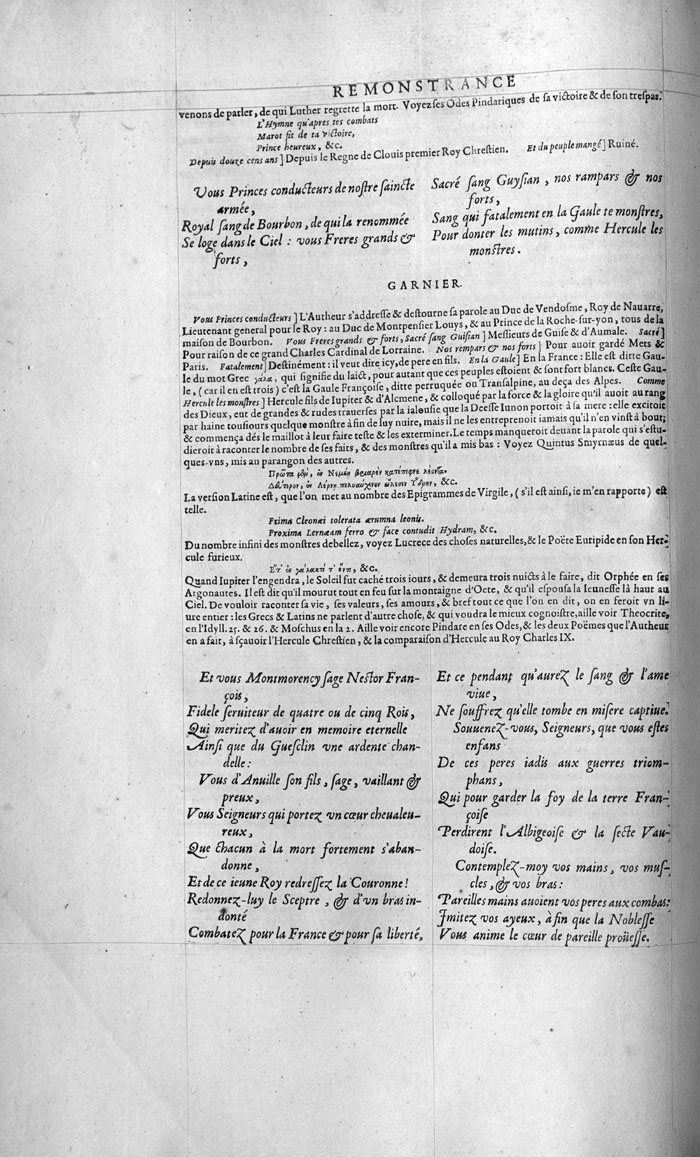 REMONSTRANCE
venons de parler, de qui Luther regrette la mort. Voyez ses Odes Pindariques de sa victoire & de son trespas.
L'Hymne qu'apres tes combats
Marot fit de ta victoire,
Prince heureux, &c.
Depuis douze cens ans] Depuis le Regne de Clouis premier Roy Chrestien. Et du peuple mangé] Ruiné.
Vous Princes conducteurs de nostre saincte
armée,
Royal sang de Bourbon, de qui la renommée
Se loge dans le Ciel : vous Freres grands &
forts,
Sacré sang Guysian, nos rampars & nos
forts,
Sang qui fatalement en la Gaule te monstres,
Pour donter les mutins, comme Hercule les
monstres.
GARNIER.
Vous Princes conducteurs] L'Autheur s'addresse & destourne sa parole au Duc de Vendosme, Roy de Nauarre,
Lieutenant general pour le Roy: au Duc de Montpensier Louys, & au Prince de la Roche-sur-yon, tous de la
maison de Bourbon. Vous Freres grands & forts, Sacré sang Guisian] Messieurs de Guise & d'Aumale. Sacré]
Pour raison de ce grand Charles Cardinal de Lorraine. Nos rempars & nos forts] Pour auoir gardé Mets &
Paris. Fatalement] Destinément: il veut dire icy, de pere en fils. En la Gaule] En la France: Elle est ditte Gau-
le du mot Grec γάλα, qui signifie du laict, pour autant que ces peuples estoient & sont fort blancs. Ceste Gau-
le, (car il en est trois) c'est la Gaule Françoise, ditte perruquée ou Transalpine, au deça des Alpes. Comme
Hercule les monstres] Hercule fils de Iupiter & d'Alcmene, & colloqué par la force & la gloire qu'il auoit au rang
des Dieux, eut de grandes & rudes trauerses par la ialousie que la Deesse Iunon portoit à sa mere: elle excitoit
par haine tousiours quelque monstre à fin de luy nuire, mais il ne les entreprenoit iamais qu'il n'en vinst à bout;
& commença dés le maillot à leur faire teste & les exterminer. Le temps manqueroit deuant la parole qui s'estu-
dieroit à raconter le nombre de ses faits, & des monstres qu'il a mis bas: Voyez Quintus Smyrnæus de quel-
ques-vns, mis au parangon des autres.
&c.
La version Latine est, que l'on met au nombre des Epigrammes de Virgile, (s'il est ainsi, ie m'en rapporte) est
telle.
Prima Cleonæi tolerata ærumna leonis.
Proxima Lernæam ferro & face contudit Hydram, &c.
Du nombre infini des monstres debellez, voyez Lucrece des choses naturelles, & le Poëte Euripide en son Her-
cule furieux.
&c.
Quand Iupiter l'engendra, le Soleil fut caché trois iours, & demeura trois nuicts à le faire, dit Orphée en ses
Argonautes. Il est dit qu'il mourut tout en feu sur la montaigne d'Oete, & qu'il esponsa la Ieunesse là haut au
Ciel. De vouloir raconter sa vie, ses valeurs, ses amours, & bref tout ce que l'on en dit, on en feroit vn li-
ure entier: les Grecs & Latins ne parlent d'autre chose, & qui voudra le mieux cognoistre, aille voir Theocrite,
en l'Idyll. 25. & 26. & Moschus en la 2. Aille voir encore Pindare en ses Odes, & les deux Poëmes que l'Autheur
en a fait, à sçauoir l'Hercule Chrestien, & la comparaison d'Hercule au Roy Charles IX.
Et vous Montmorency sage Nestor Fran-
çois,
Fidele seruiteur de quatre ou de cinq Rois,
Qui meritez d'auoir en memoire eternelle
Ainsi que du Guesclin vne ardente chan-
delle:
Vous d'Anuille son fils, sage, vaillant &
preux,
Vous Seigneurs qui portez vn cœur cheualeu-
reux,
Que chacun à la mort fortement s'aban-
donne,
Et de ce ieune Roy redressez la Couronne!
Redonnez-luy le Sceptre, & d'vn bras in-
donté
Combatez pour la France & pour sa liberté,
Et ce pendant qu'aurez le sang & l'ame
viue,
Ne souffrez qu'elle tombe en misere captiue.
Souuenez-vous, Seigneurs, que vous estes
enfans
De ces peres iadis aux guerres triom-
phans,
Qui pour garder la foy de la terre Fran-
çoise
Perdirent l'Albigeoise & la secte Vau-
doise.
Contemplez-moy vos mains, vos mus-
cles, & vos bras:
Pareilles mains auoient vos peres aux combas:
Imitez vos ayeux, à fin que la Noblesse
Vous anime le cœur de pareille proüesse.